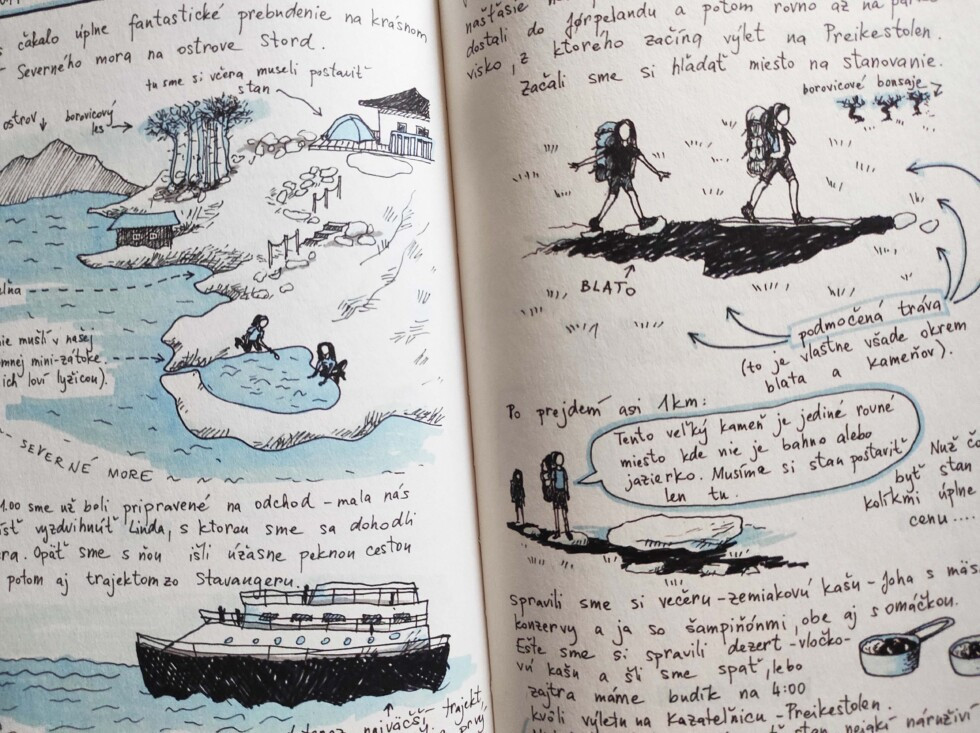 čakalo úplne fantastické prebudenie na krásnom
Severného mora na ostrove Stord.
tu sme si včera museli postaviť
stan
ostrov
borovicový
les
mušlí v našej
mini-zátoke.
ich loví lyžicou).
SEVERNÉ MORE
sme už boli pripravené na odchod - mala nás
vyzdvihnúť Linda, s ktorou sme sa dohodli
Opäť sme s ňou išli úžasne peknou cestou
potom aj trajektom zo Stavangeru.
najväčší trajekt,
našťasie
dostali do Jørpelandu a potom rovno až na
visko, z ktorého začína výlet na Preikestolen.
Začali sme si hľadať miesto na stanovanie.
borovicové bonsaje
BLATO
podmočená tráva
(to je vlastne všade okrem
blata a kameňov).
Po prejdení asi 1km:
Tento veľký kameň je jediné rovné
miesto kde nie je bahno alebo
jazierko. Musíme si stan postaviť
len tu.
Nuž
byť stan
kolíkmi úplne
cenu....
Spravili sme si večeru - zemiakovú kašu - Joha s
konzervy a ja so šampiňónmi, obe aj s omáčkou.
Ešte sme si spravili dezert - vločko-
vú kašu a šli sme spať, lebo
zajtra máme budík na 4:00
kvôli výletu na Kazateľnicu - Preikestolen.